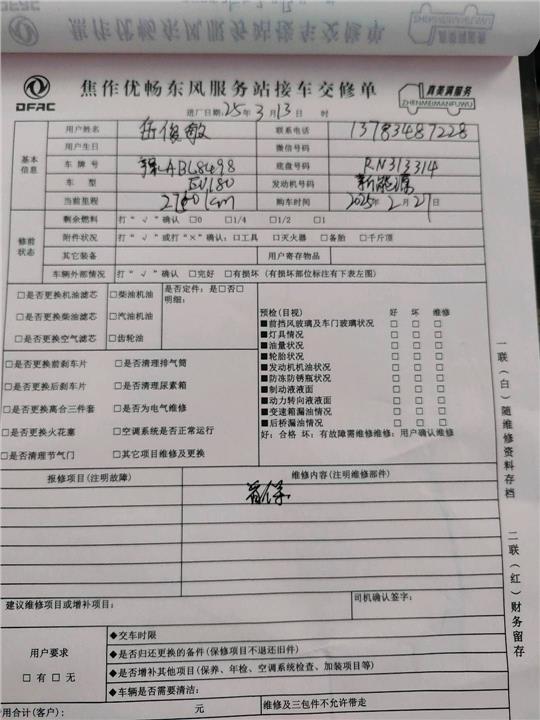 焦作优畅东风服务站接车交修单
DFAC
焦作优畅东风服务站接车交修单
真美满服务
ZHENMEIMANFUWU
进厂日期:25年3月13日 时
基本信息
用户姓名 岳俊敏 联系电话 13783487228
用户生日 微信号码
车牌号 豫ABL8498 底盘号码 RN313314
车型 EV180 发动机号码 新能源
当前里程 km 购车时间 2025年2月27日
修前状态
剩余燃料 打“√”确认 □0 □1/4 □1/2 □1
附件状况 打“√”或打“×”确认:口工具 □灭火器 □备胎 □千斤顶
其它装备 用户寄存物品
车辆外部情况 打“√”确认 □完好 □有损坏(有损坏部位标注有下表左图)
□是否更换机油滤芯 □柴油机油 是否定件:是□否□
明细:
□是否更换柴油滤芯 □汽油机油
□是否更换空气滤芯 □齿轮油
预检(目视) 好 坏 维修
■前挡风玻璃及车门玻璃状况 □ □ □
■灯具情况 □ □ □
■油量状况 □ □ □
■轮胎状况 □ □ □
■发动机机油状况 □ □ □
■防冻防锈瓶状况 □ □ □
■制动液液面 □ □ □
■动力转向液液面 □ □ □
■变速箱漏油情况 □ □ □
■后桥漏油情况 □ □ □
好:合格 坏:有故障需维修维修:用户确认维修
□是否更换前刹车片 □是否清理排气筒
□是否更换后刹车片 □是否清理尿素箱
□是否更换离合三件套 □是否为电气维修
□是否更换火花塞 □空调系统是否正常运行
□是否清理节气门 □其它项目维修及更换
报修项目(注明故障) 维修内容(注明维修部件)
建议维修项目或增补项目: 司机确认签字:
用户要求
□有□无
◆交车时限
◆是否归还更换的备件(保修项目不退还旧件)
◆是否增补其他项目(保养、年检、空调系统检查、加装项目等)
◆车辆是否需要清洁:
用合计(客户): 元 维修及三包件不允许带走
一联(白)随维修资料存档
二联(红)财务留存